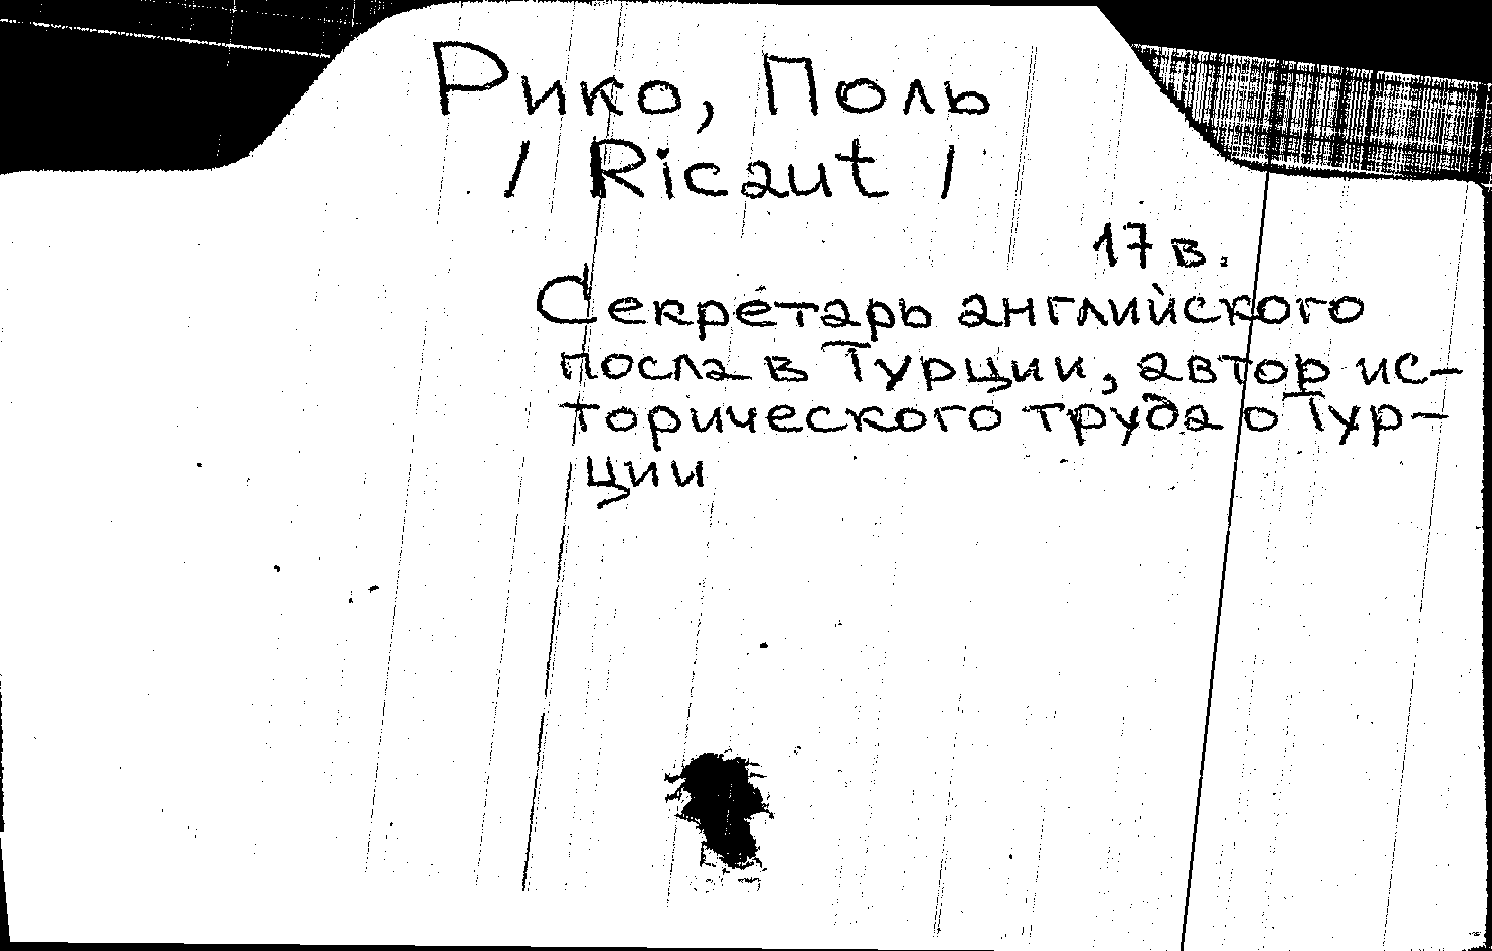 Рико, Поль
/ Ricaut /
17 в.
Секретарь английского
посла в Турции, автор ис-
торического труда о Тур-
ции